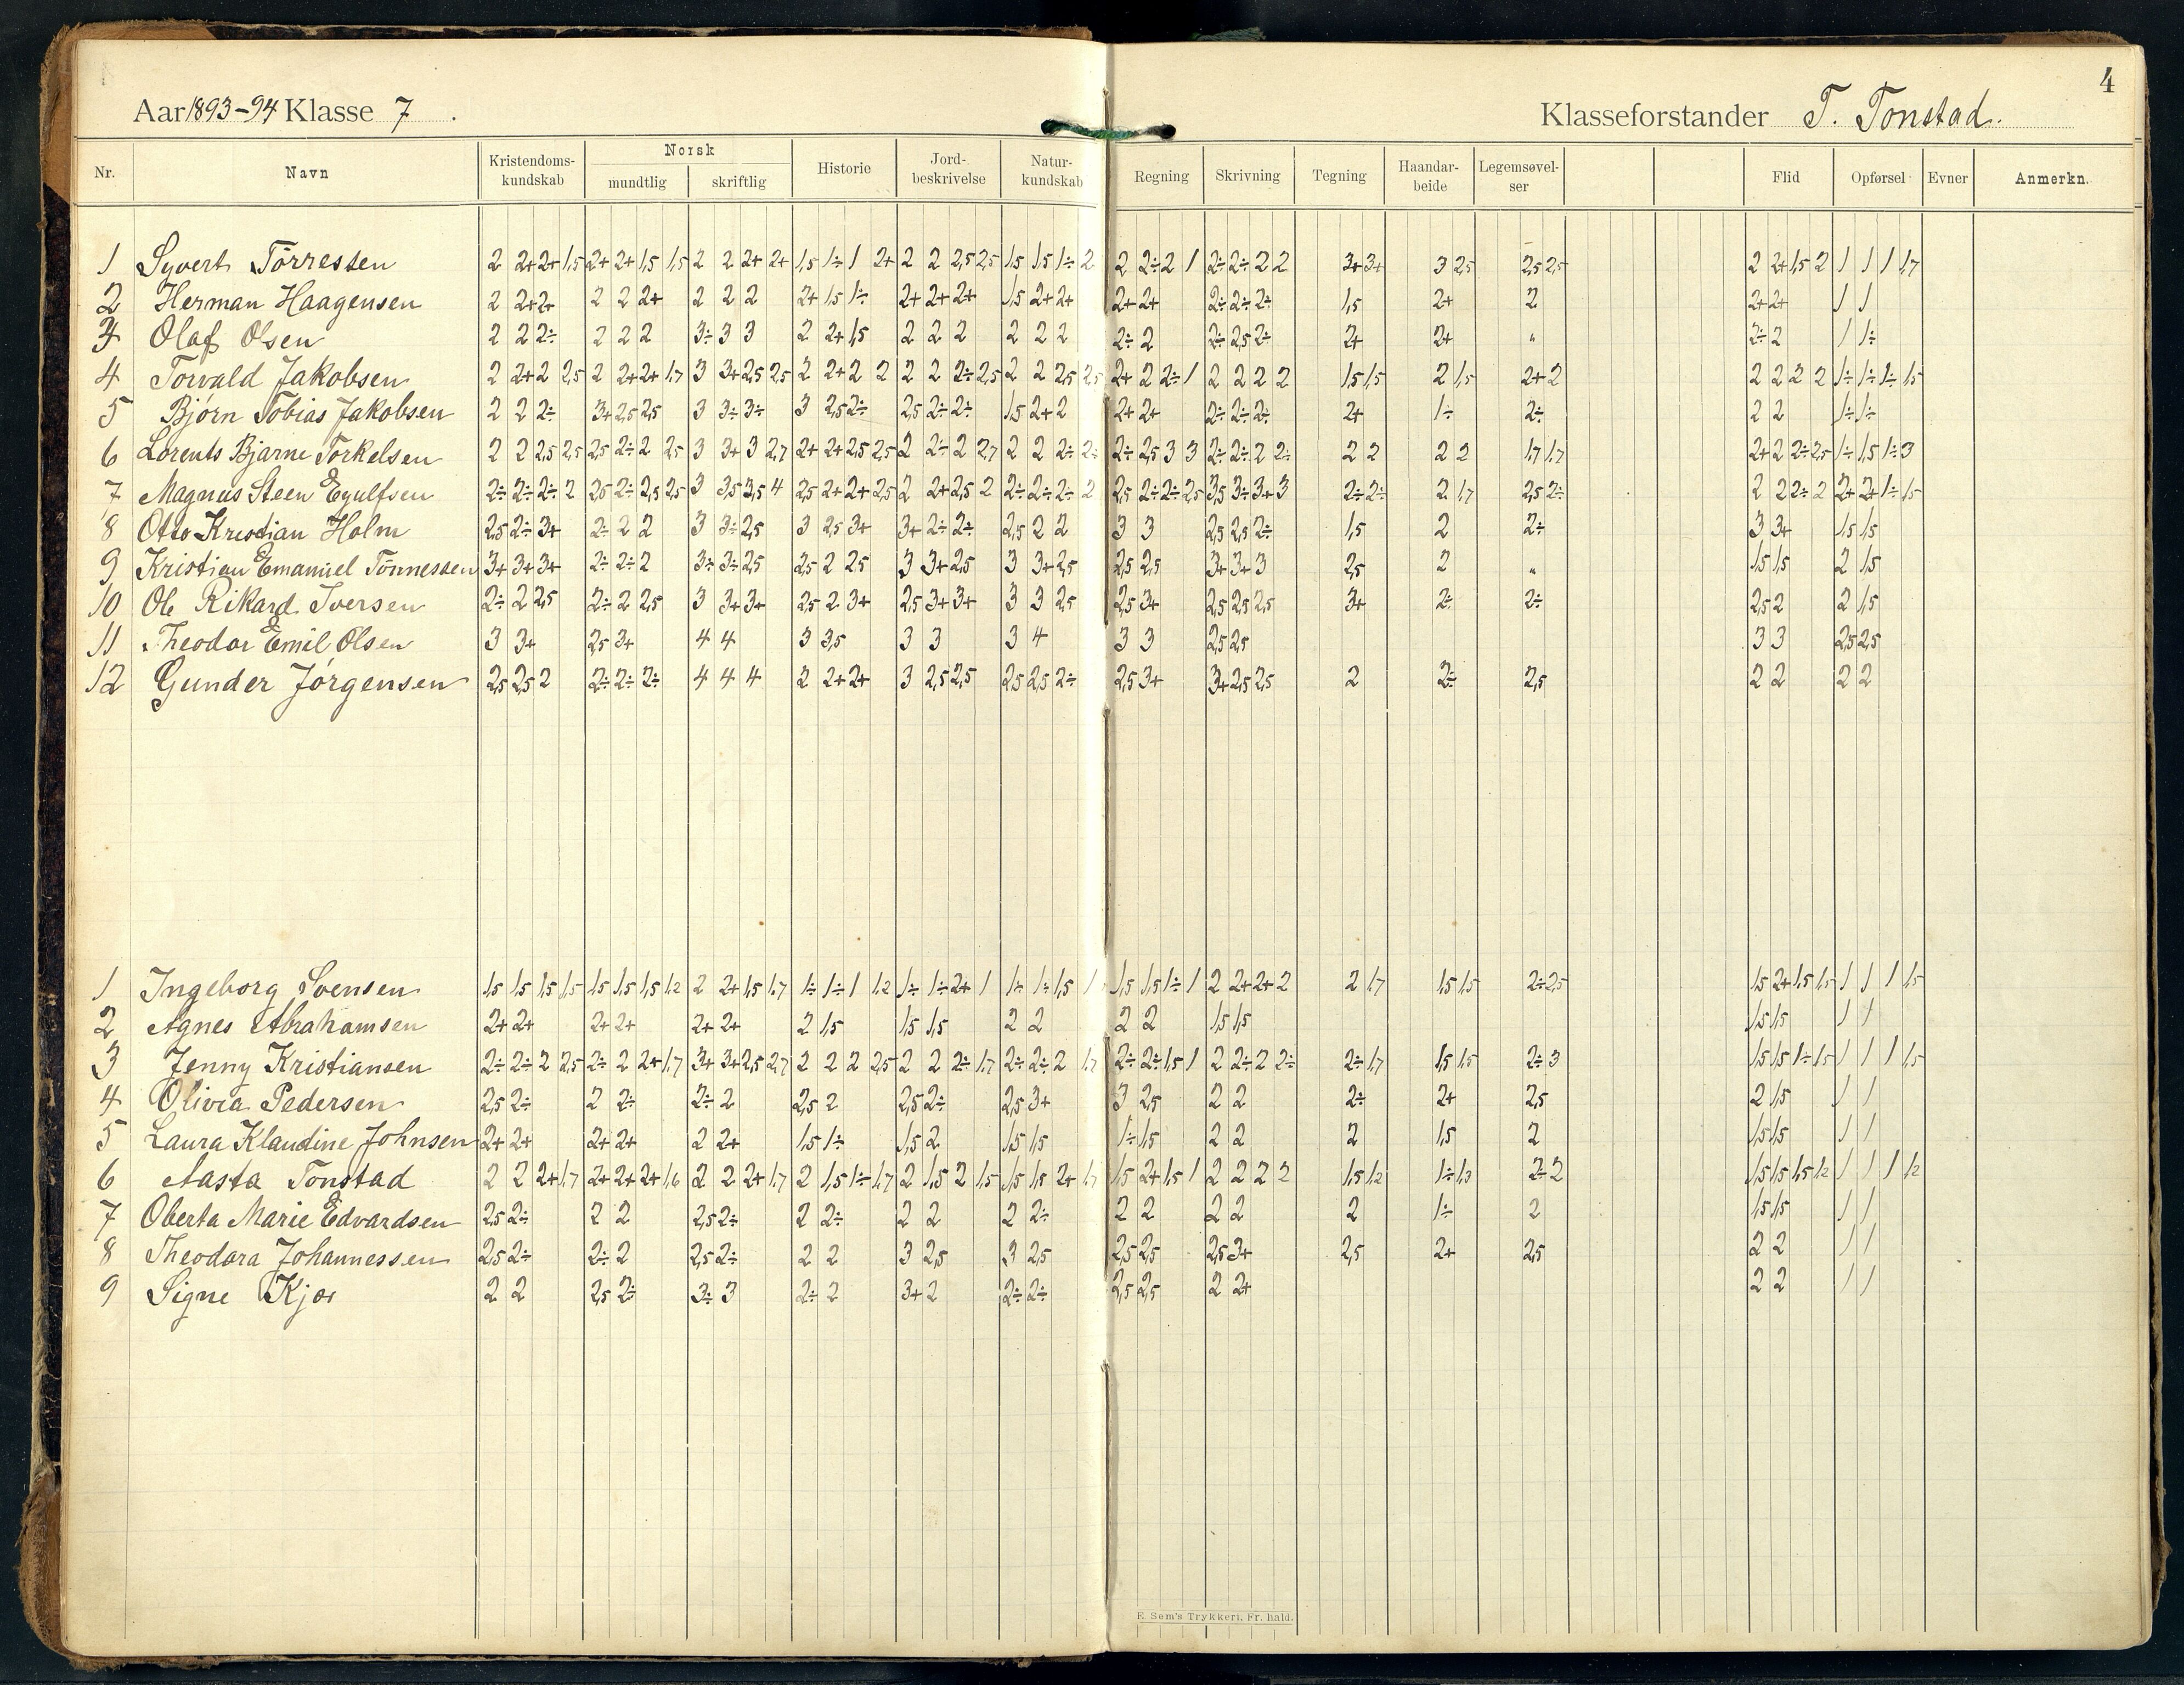 4
Aar 1893-94 Klasse 7.
Klasseforstander T. Tonstad.
Nr. Navn Kristendoms-kundskab Norsk mundtlig skriftlig Historie Jord-beskrivelse Natur-kundskab Regning Skrivning Tegning Haandar-beide Legemsøvel-ser Flid Opførsel Evner Anmerkn.
1 Syvert Tørressen 2 2+ 2+ 1,5 2+ 2+ 1,5 1,5 2 2 2+ 2+ 1,5 1÷ 1 2+ 2 2 2,5 2,5 1,5 1,5 1÷ 2 2 2÷ 2 1 2÷ 2÷ 2 2 3+ 3+ 3 2,5 2,5 2,5 2 2+ 1,5 2 1 1 1 1,7
2 Herman Haagensen 2 2+ 2+ 2 2 2+ 2 2 2 2+ 1,5 1÷ 2+ 2+ 2+ 1,5 2+ 2+ 2+ 2+ 2÷ 2÷ 2÷ 1,5 2+ 2 2+ 2+ 1 1
3 Olaf Olsen 2 2 2÷ 2 2 2 3÷ 3 3 2 2+ 1,5 2 2 2 2 2 2 2÷ 2 2÷ 2,5 2÷ 2+ 2+ " 2÷ 2 1 1÷
4 Torvald Jakobsen 2 2+ 2 2,5 2 2+ 2+ 1,7 3 3+ 2,5 2,5 2 2+ 2 2 2 2 2÷ 2,5 2 2 2,5 2,5 2+ 2 2÷ 1 2 2 2 2 1,5 1,5 2 1,5 2+ 2 2 2 2 2 1÷ 1÷ 1÷ 1,5
5 Bjørn Tobias Jakobsen 2 2 2÷ 3+ 2,5 2,5 3 3÷ 3÷ 3 2,5 2÷ 2,5 2÷ 2÷ 1,5 2+ 2 2+ 2+ 2÷ 2÷ 2÷ 2+ 1÷ 2÷ 2 2 1÷ 1÷
6 Lorents Bjarne Torkelsen 2 2 2,5 2,5 2,5 2÷ 2 2,5 3 3+ 3 2,7 2+ 2+ 2,5 2,5 2 2÷ 2 2,7 2 2 2÷ 2÷ 2÷ 2,5 3 3 2÷ 2÷ 2 2÷ 2 2 2 2 1,7 1,7 2+ 2 2÷ 2,5 1÷ 1,5 1÷ 3
7 Magnus Steen Eyulfsen 2÷ 2÷ 2÷ 2 2,5 2÷ 2,5 2,5 3 3,5 3,5 4 2,5 2+ 2+ 2,5 2 2+ 2,5 2 2÷ 2÷ 2÷ 2 2,5 2÷ 2÷ 2,5 3,5 3÷ 3+ 3 2÷ 2÷ 2 1,7 2,5 2÷ 2 2 2÷ 2 2+ 2+ 1÷ 1,5
8 Otto Kristian Holm 2,5 2÷ 3+ 2÷ 2 2 3 3÷ 2,5 3 2,5 3+ 3+ 2÷ 2÷ 2,5 2 2 3 3 2,5 2,5 2÷ 1,5 2 2÷ 3 3+ 1,5 1,5
9 Kristian Emanuel Tønnessen 3+ 3+ 3+ 2÷ 2÷ 2 3÷ 3÷ 2,5 2,5 2 2,5 3 3+ 2,5 3 3+ 2,5 2,5 2,5 3+ 3+ 3 2,5 2 " 1,5 1,5 2 1,5
10 Ole Rikard Iversen 2÷ 2 2,5 2÷ 2 2,5 3 3+ 3+ 2,5 2 3+ 2,5 3+ 3+ 3 3 2,5 2,5 3+ 2,5 2,5 2,5 3+ 2÷ 2÷ 2,5 2 2 1,5
11 Theodor Emil Olsen 3 3+ 2,5 3+ 4 4 3 3,5 3 3 3 4 3 3 2,5 2,5 3 3 2,5 2,5
12 Gunder Jørgensen 2,5 2,5 2 2÷ 2÷ 2÷ 4 4 4 2 2+ 2+ 3 2,5 2,5 2,5 2,5 2÷ 2,5 3+ 3+ 2,5 2,5 2 2÷ 2,5 2 2 2 2
1 Ingeborg Svensen 1,5 1,5 1,5 1,5 1,5 1,5 1,5 1,2 2 2+ 1,5 1,7 1÷ 1÷ 1 1,2 1÷ 1÷ 2+ 1 1÷ 1÷ 1,5 1 1,5 1,5 1÷ 1 2 2+ 2+ 2 2 1,7 1,5 1,5 2÷ 2,5 1,5 2+ 1,5 1,5 1 1 1 1,5
2 Agnes Abrahamsen 2+ 2+ 2+ 2+ 2+ 2+ 2 1,5 1,5 1,5 2 2 2 2 1,5 1,5 1,5 1,5 1 1
3 Jenny Kristiansen 2÷ 2÷ 2 2,5 2÷ 2 2+ 1,7 3+ 3+ 2,5 2,7 2 2 2 2,5 2 2 2÷ 1,7 2÷ 2÷ 2 1,7 2÷ 2÷ 1,5 1 2 2÷ 2 2÷ 2÷ 1,7 1,5 1,5 2÷ 3 1,5 1,5 1÷ 1,5 1 1 1 1,5
4 Olivia Pedersen 2,5 2÷ 2 2÷ 2÷ 2 2,5 2 2,5 2÷ 2,5 3+ 3 2,5 2 2 2÷ 2+ 2,5 2 1,5 1 1
5 Laura Klaudine Johnsen 2+ 2+ 2+ 2+ 2 2+ 1,5 1÷ 1,5 2 1,5 1,5 1÷ 1,5 2 2 2 1,5 2 1,5 1,5 1 1
6 Aasta Tonstad 2 2 2+ 1,7 2+ 2+ 2+ 1,6 2 2 2+ 1,7 2 1,5 1÷ 1,7 2 1,5 2 1,5 1,5 1,5 2+ 1,7 1,5 2+ 1,5 1 2 2 2 2 1,5 1,2 1÷ 1,3 2÷ 2 1,5 1,5 1,5 1,2 1 1 1 1,2
7 Oberta Marie Edvardsen 2,5 2÷ 2 2 2,5 2÷ 2 2÷ 2 2 2 2÷ 2 2 2 2 2 1÷ 2 1,5 1,5 1 1
8 Theodora Johannessen 2,5 2÷ 2÷ 2 2,5 2÷ 2 2 3 2,5 3 2,5 2,5 2,5 2,5 3+ 2,5 2+ 2,5 2 2 1 1
9 Signe Kjær 2 2 2,5 2÷ 3÷ 3 2÷ 2 3+ 2 2÷ 2÷ 2,5 2,5 2 2+ 2 2 1 1
E. Sem's Trykkeri. Fr. hald.